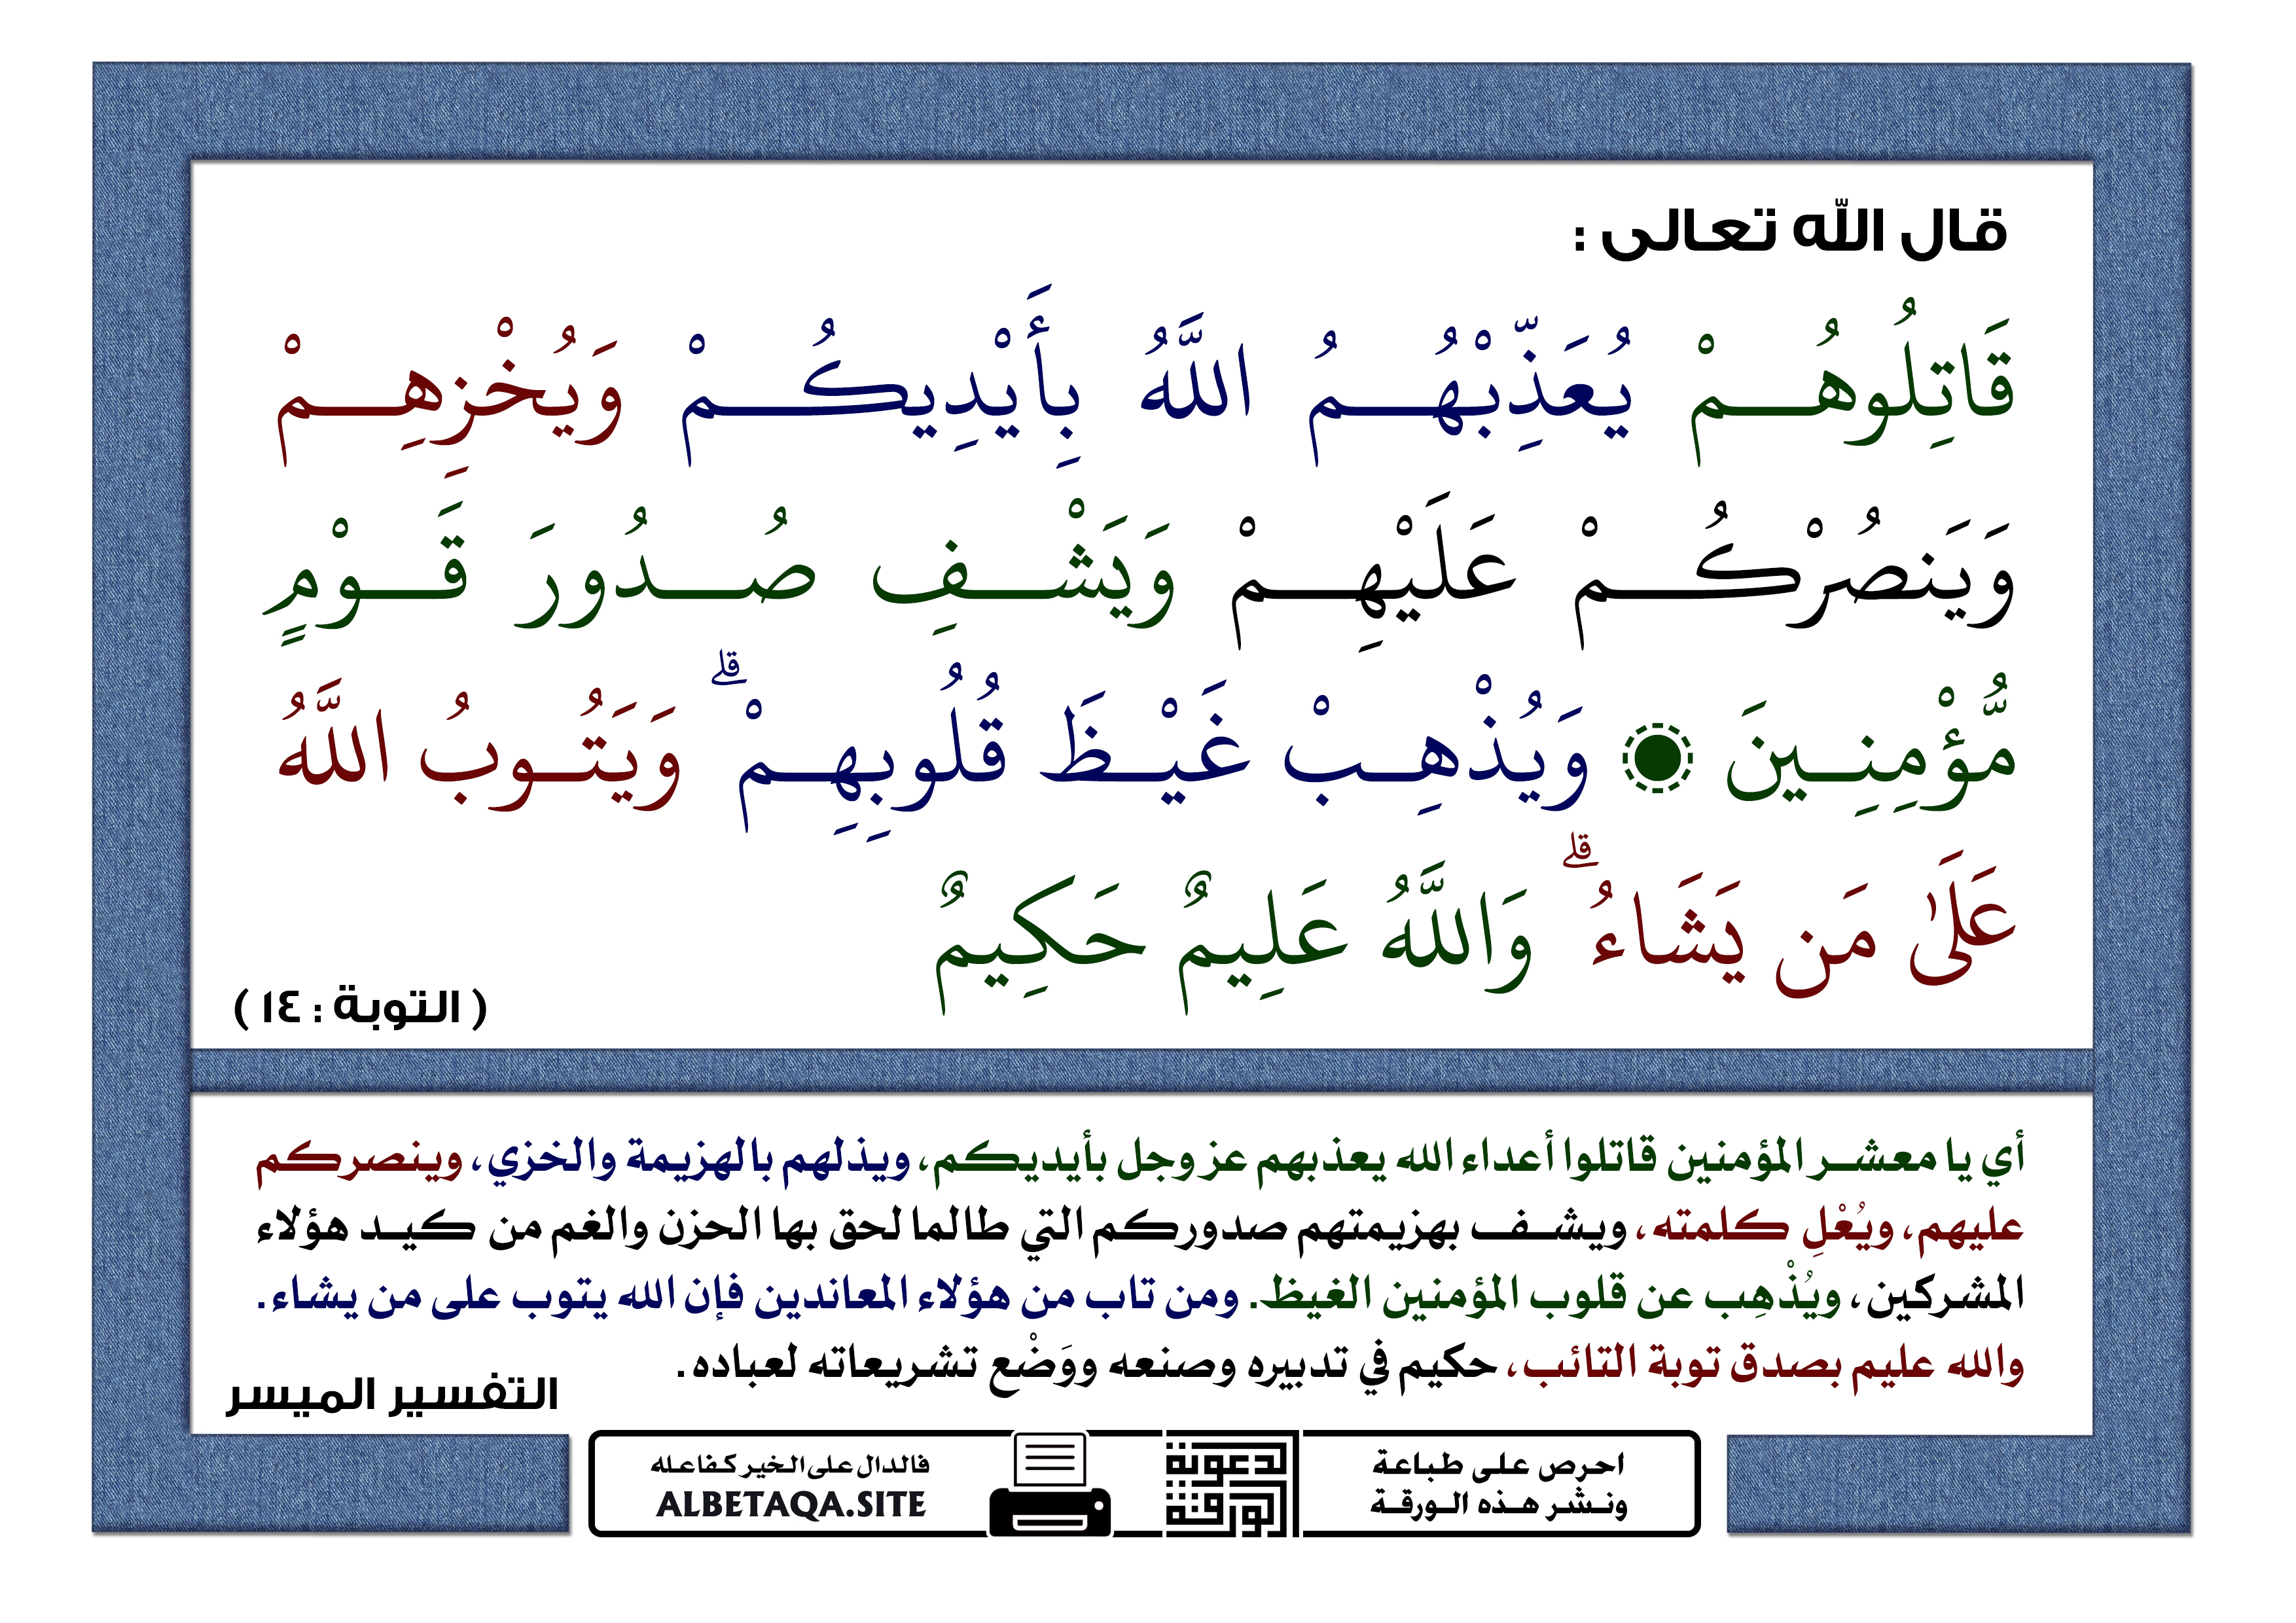 قال الله تعالى :
قَاتِلُوهُمْ يُعَذِّبْهُمُ اللَّهُ بِأَيْدِيكُمْ وَيُخْزِهِمْ
وَيَنصُرْكُمْ عَلَيْهِمْ وَيَشْفِ صُدُورَ قَوْمٍ
مُّؤْمِنِينَ ۝ وَيُذْهِبْ غَيْظَ قُلُوبِهِمْ ۗ وَيَتُوبُ اللَّهُ
عَلَىٰ مَن يَشَاءُ ۗ وَاللَّهُ عَلِيمٌ حَكِيمٌ
( التوبة : ١٤ )
أي يا معشر المؤمنين قاتلوا أعداء الله يعذبهم عز وجل بأيديكم، ويذلهم بالهزيمة والخزي، وينصركم
عليهم، ويُعْلِ كلمته، ويشف بهزيمتهم صدوركم التي طالما لحق بها الحزن والغم من كيد هؤلاء
المشركين، ويُذْهِب عن قلوب المؤمنين الغيظ. ومن تاب من هؤلاء المعاندين فإن الله يتوب على من يشاء.
والله عليم بصدق توبة التائب، حكيم في تدبيره وصنعه ووَضْع تشريعاته لعباده.
التفسير الميسر
احرص على طباعة
ونشر هذه الورقة
الدعوية
الورقة
فالدال على الخير كفاعله
ALBETAQA.SITE